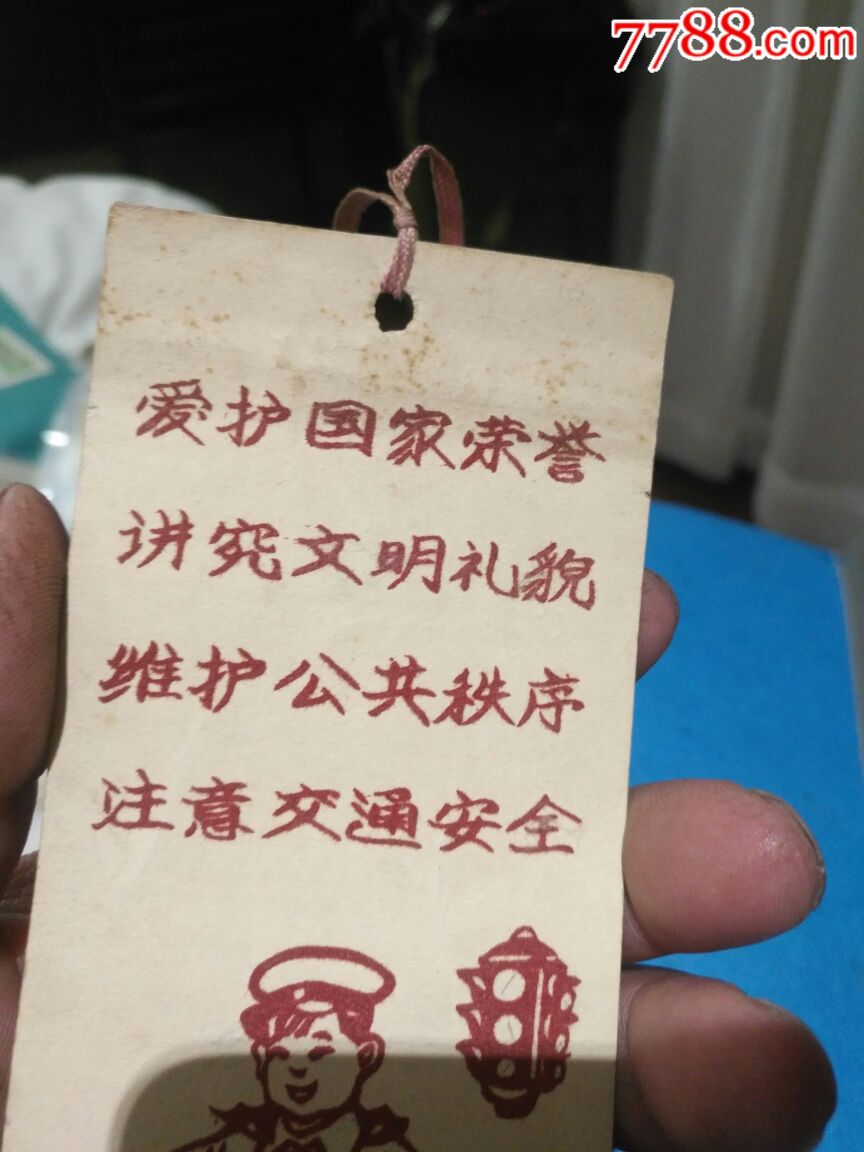 7788.com
爱护国家荣誉
讲究文明礼貌
维护公共秩序
注意交通安全